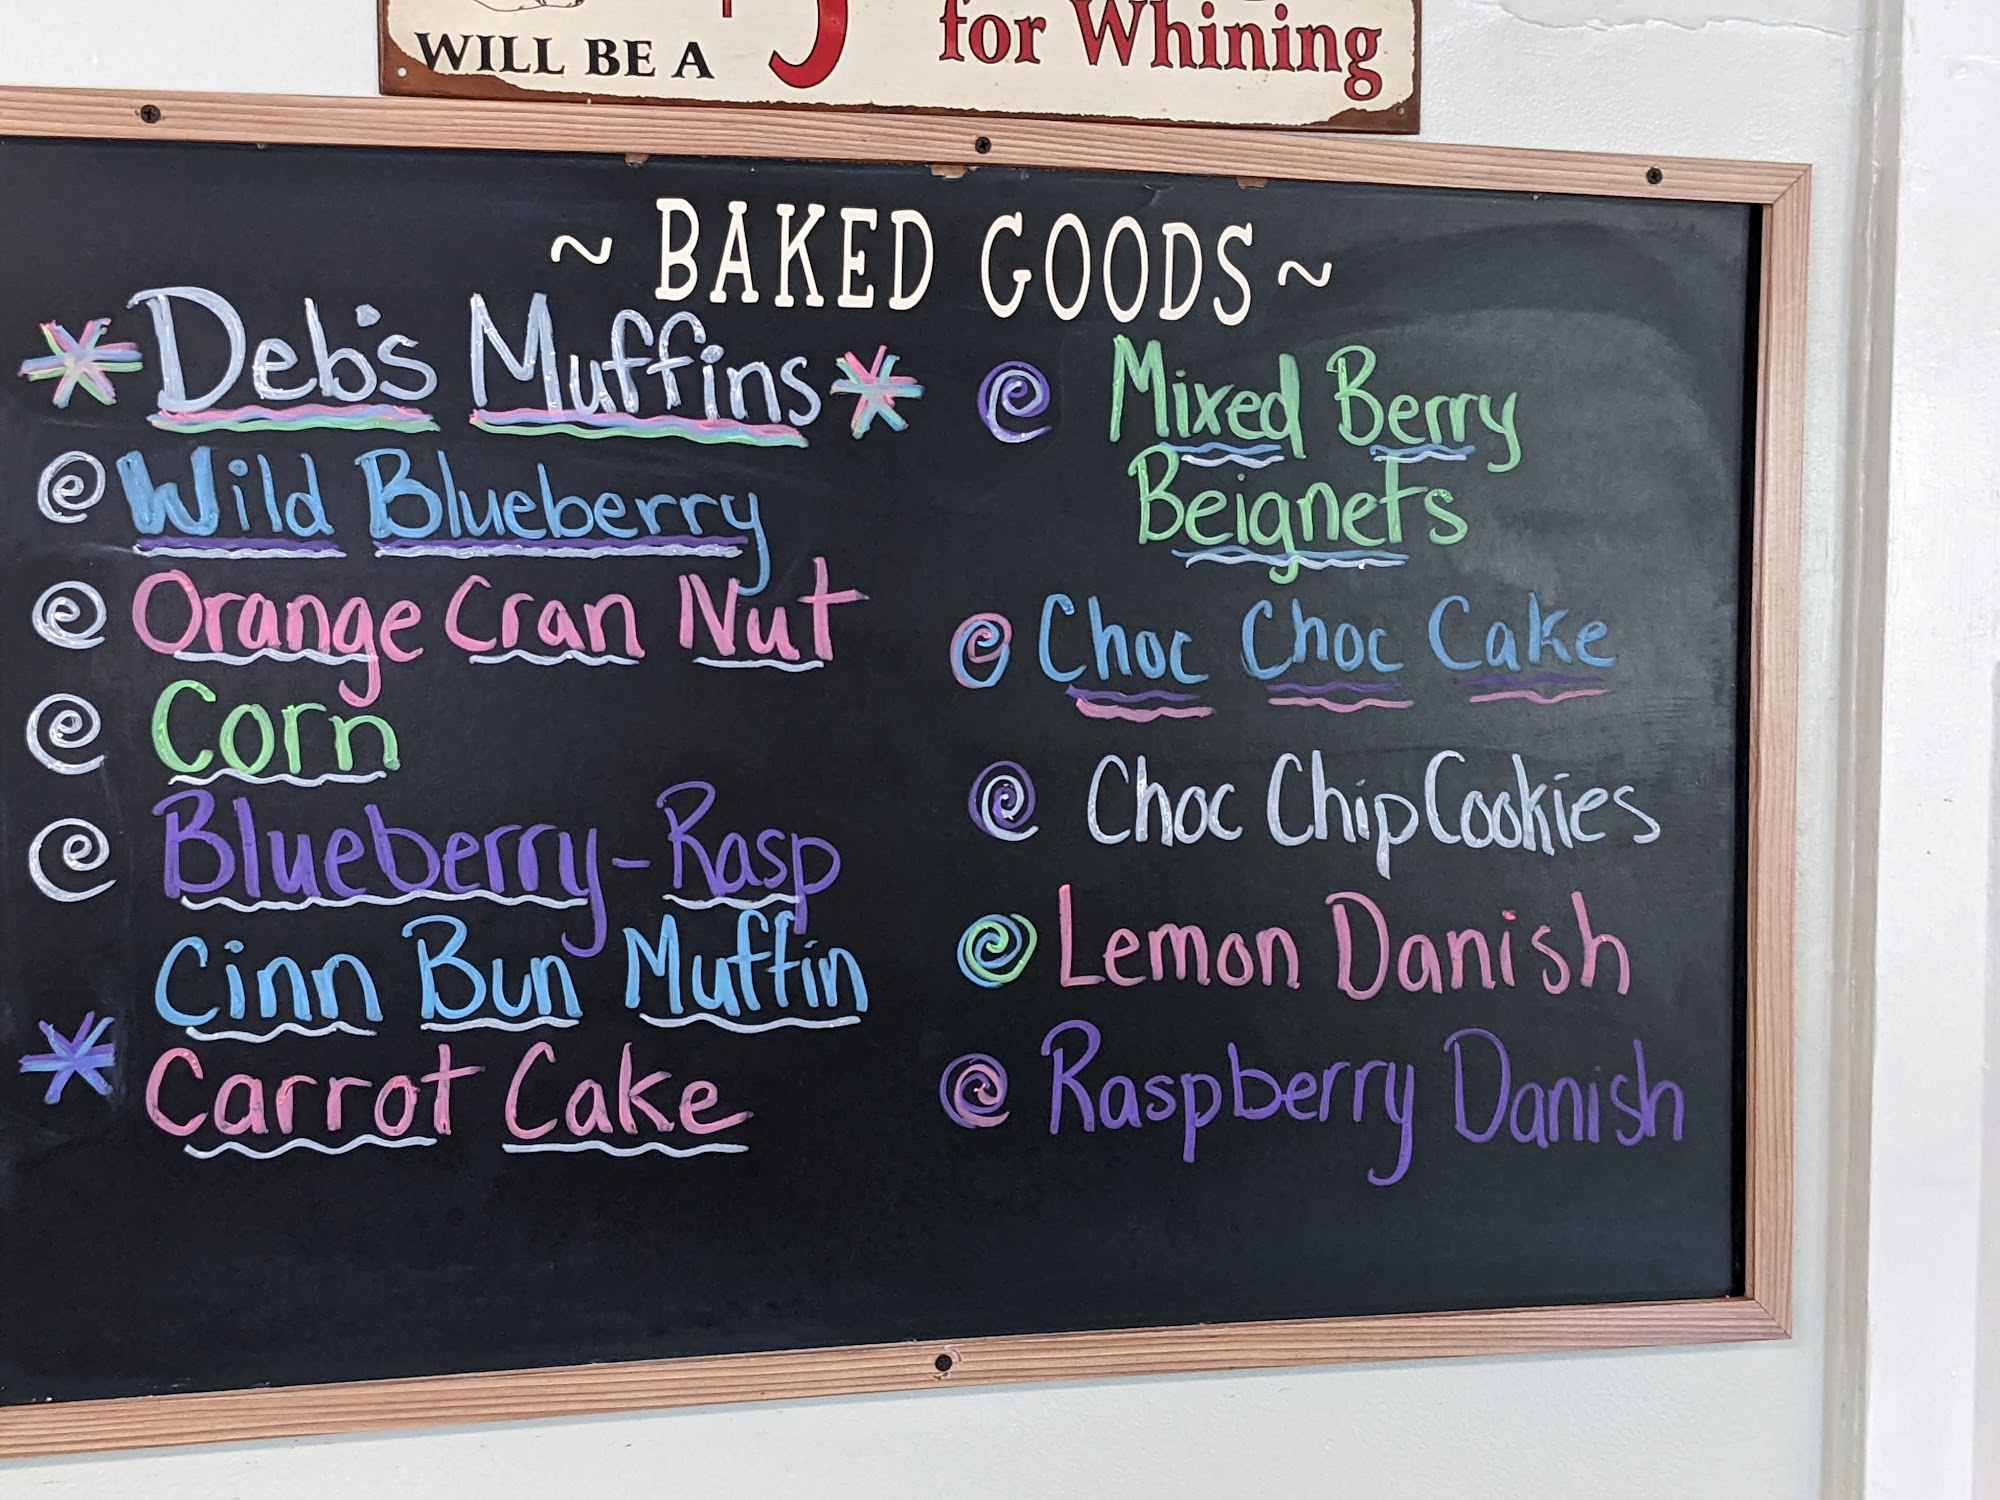 WILL BE A
for Whining
~ BAKED GOODS ~
Deb's Muffins
Wild Blueberry
Orange Cran Nut
Corn
Blueberry-Rasp
Cinn Bun Muffin
Carrot Cake
Mixed Berry
Beignets
Choc Choc Cake
Choc Chip Cookies
Lemon Danish
Raspberry Danish